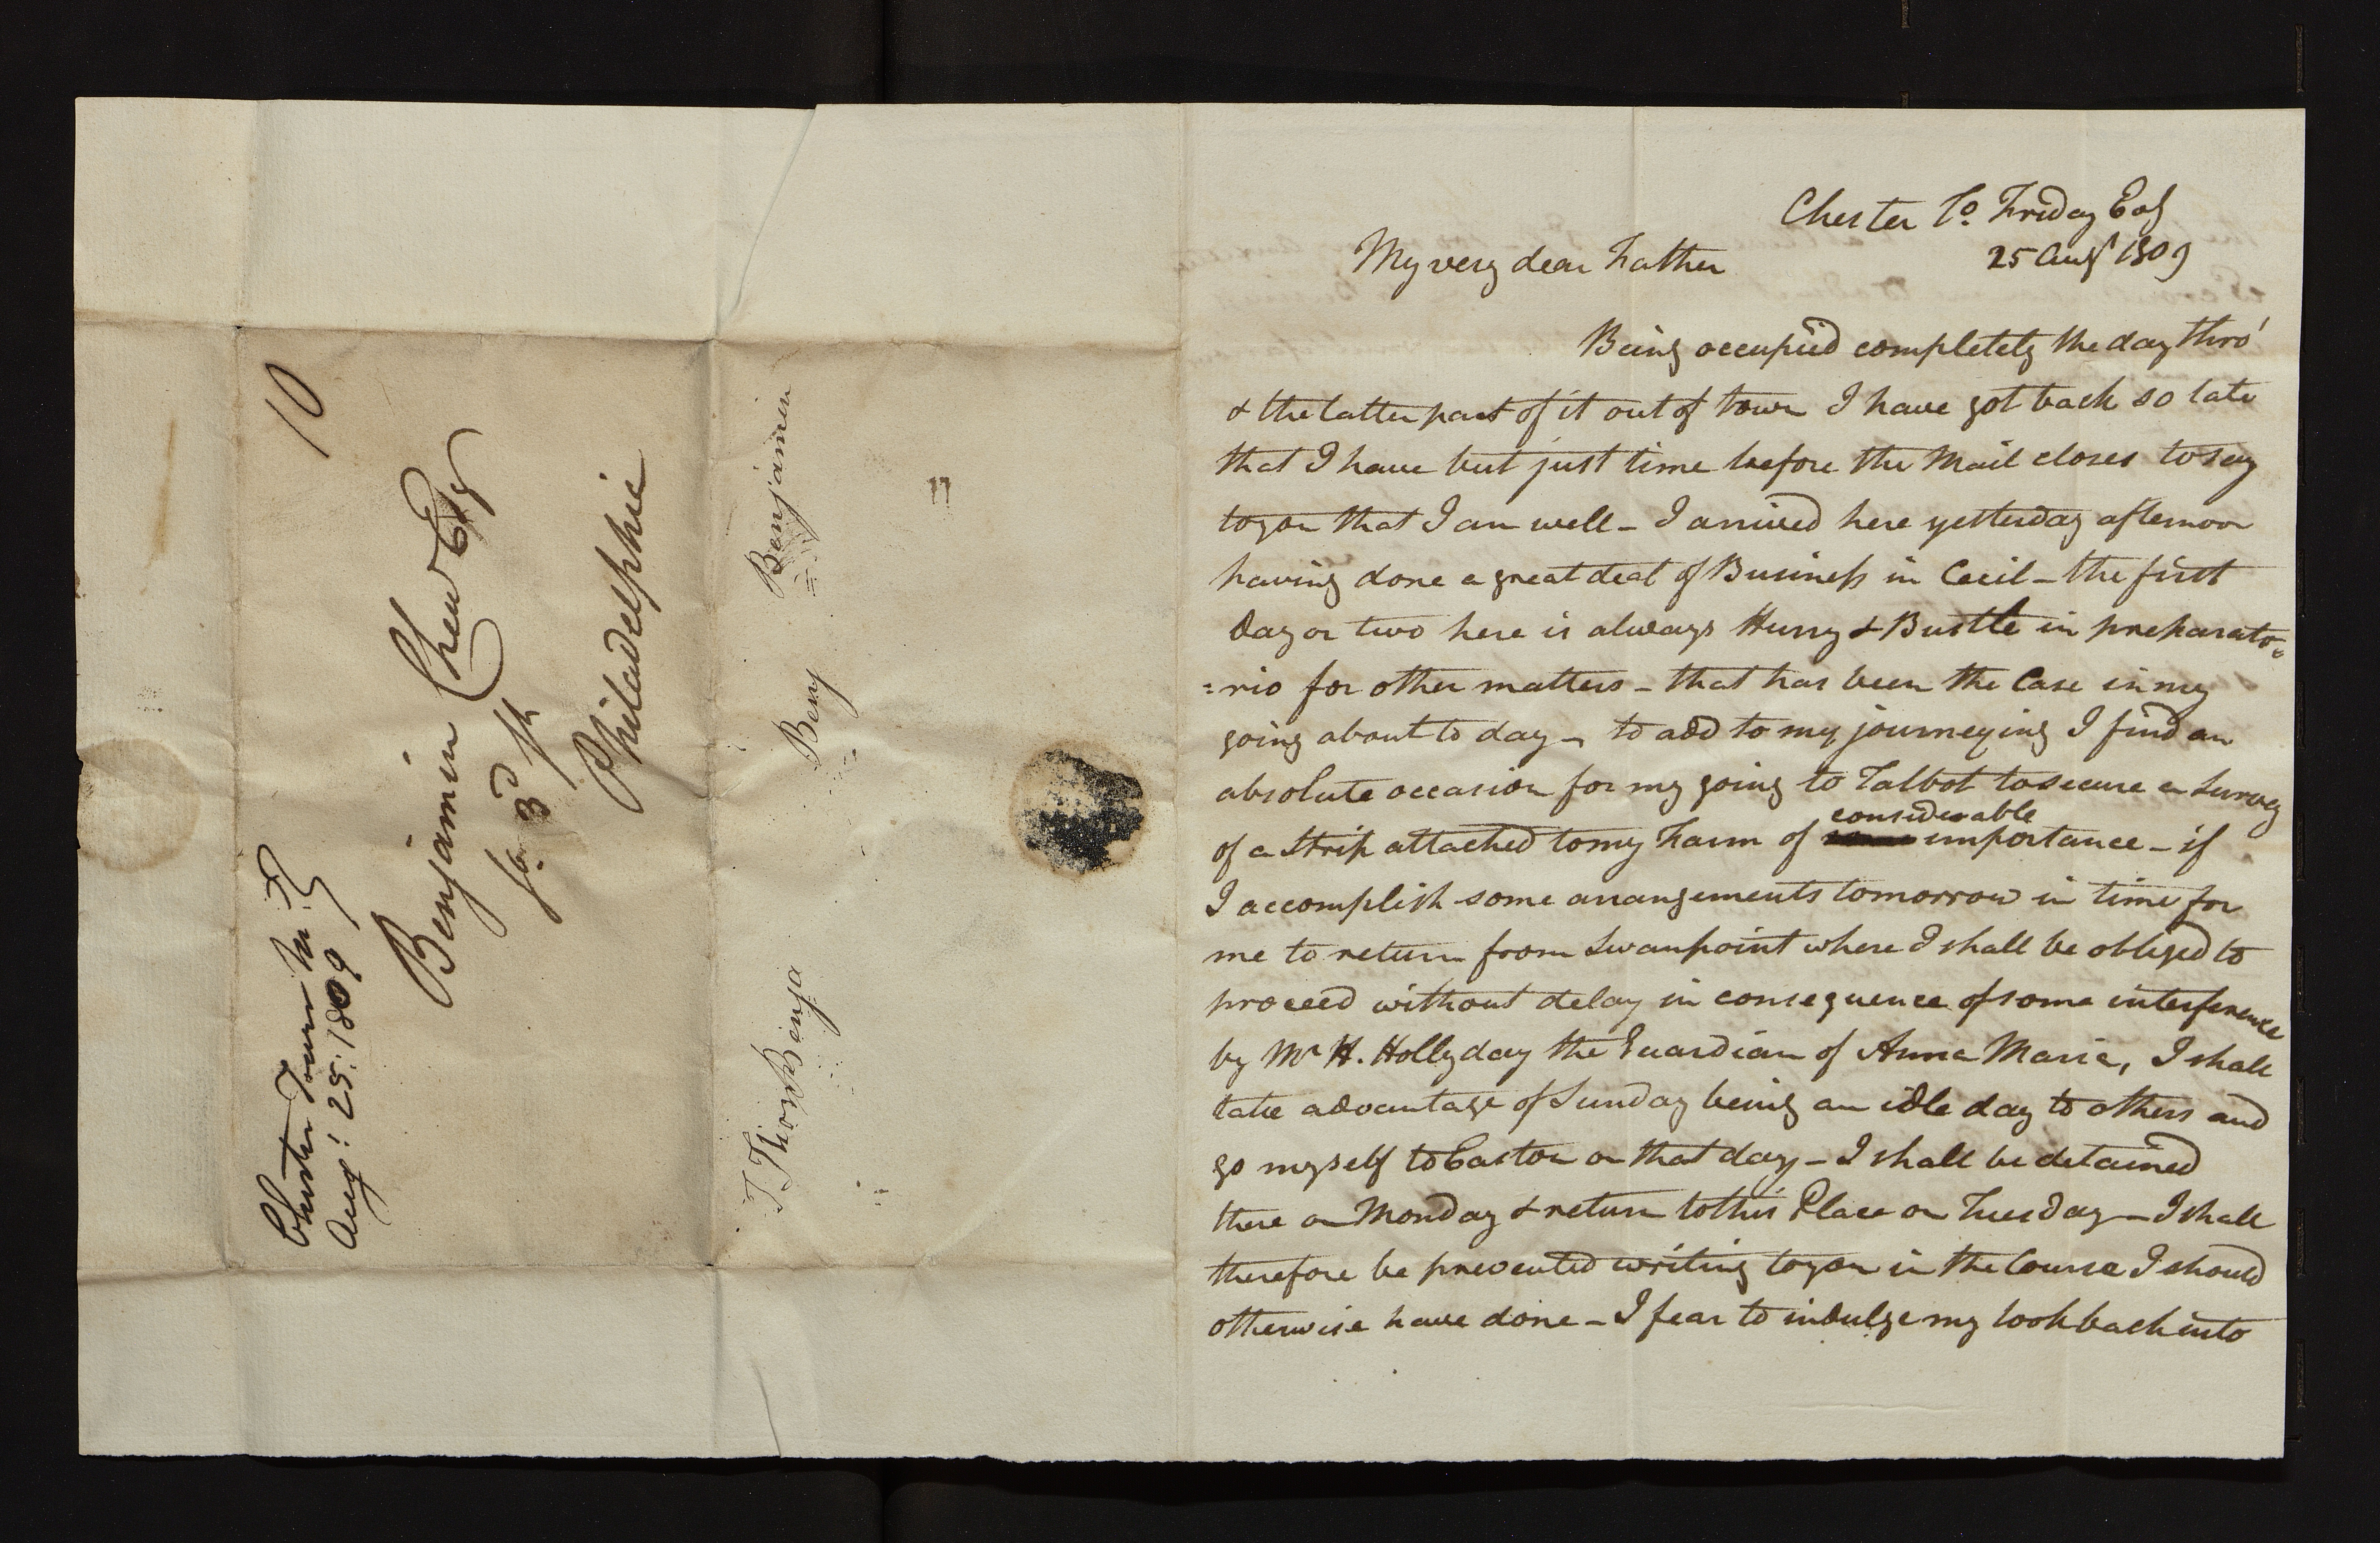 10
Chester Town Md
Aug: 25. 1809
Benjamin Chew Esqr
So 3d St
Philadelphia
Benjamin
Benj
Benja
Chester To Friday Evg
25 Augt 1809
My very dear Father
Being occupied completely the day thro'
& the latter part of it out of town I have got back so late
that I have but just time before the Mail closes to say
to you that I am well – I arrived here yesterday afternoon
having done a great deal of Business in Cecil – the first
day or two here is always Hurry & Bustle in preparato=
=rio for other matters – that has been the Case in my
going about to day – to add to my journeying I find an
absolute occasion for my going to Talbot to secure a Survey
of a Strip attached to my Farm of considerable importance – if
I accomplish some arrangements tomorrow in time for
me to return from Swanpoint where I shall be obliged to
proceed without delay in consequence of some interference
by Mr H. Hollyday the Guardian of Anna Maria, I shall
take advantage of Sunday being an idle day to others and
go myself to Easton on that day – I shall be detained
there on Monday & return to this Place on Tuesday – I shall
therefore be prevented writing to you in the Course I should
otherwise have done – I fear to indulge my look back into